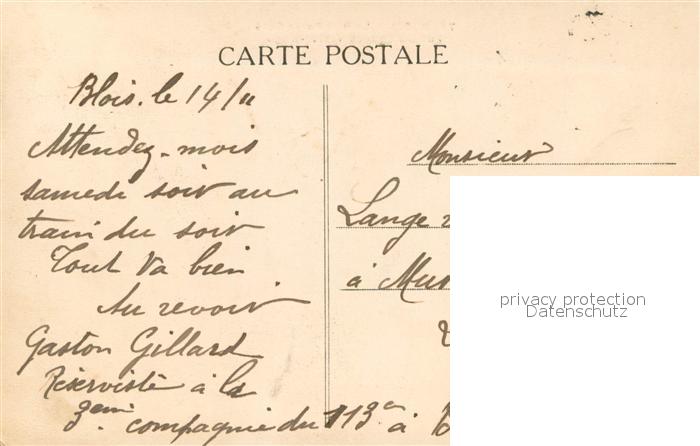 CARTE POSTALE
Blois. le 14/11
Attendez-mois
samedi soir au
train du soir
Tout va bien
Au revoir
Gaston Gillard
Réserviste à la
3eme. compagnie du 113e à
Monsieur
Lange
à
privacy protection
Datenschutz